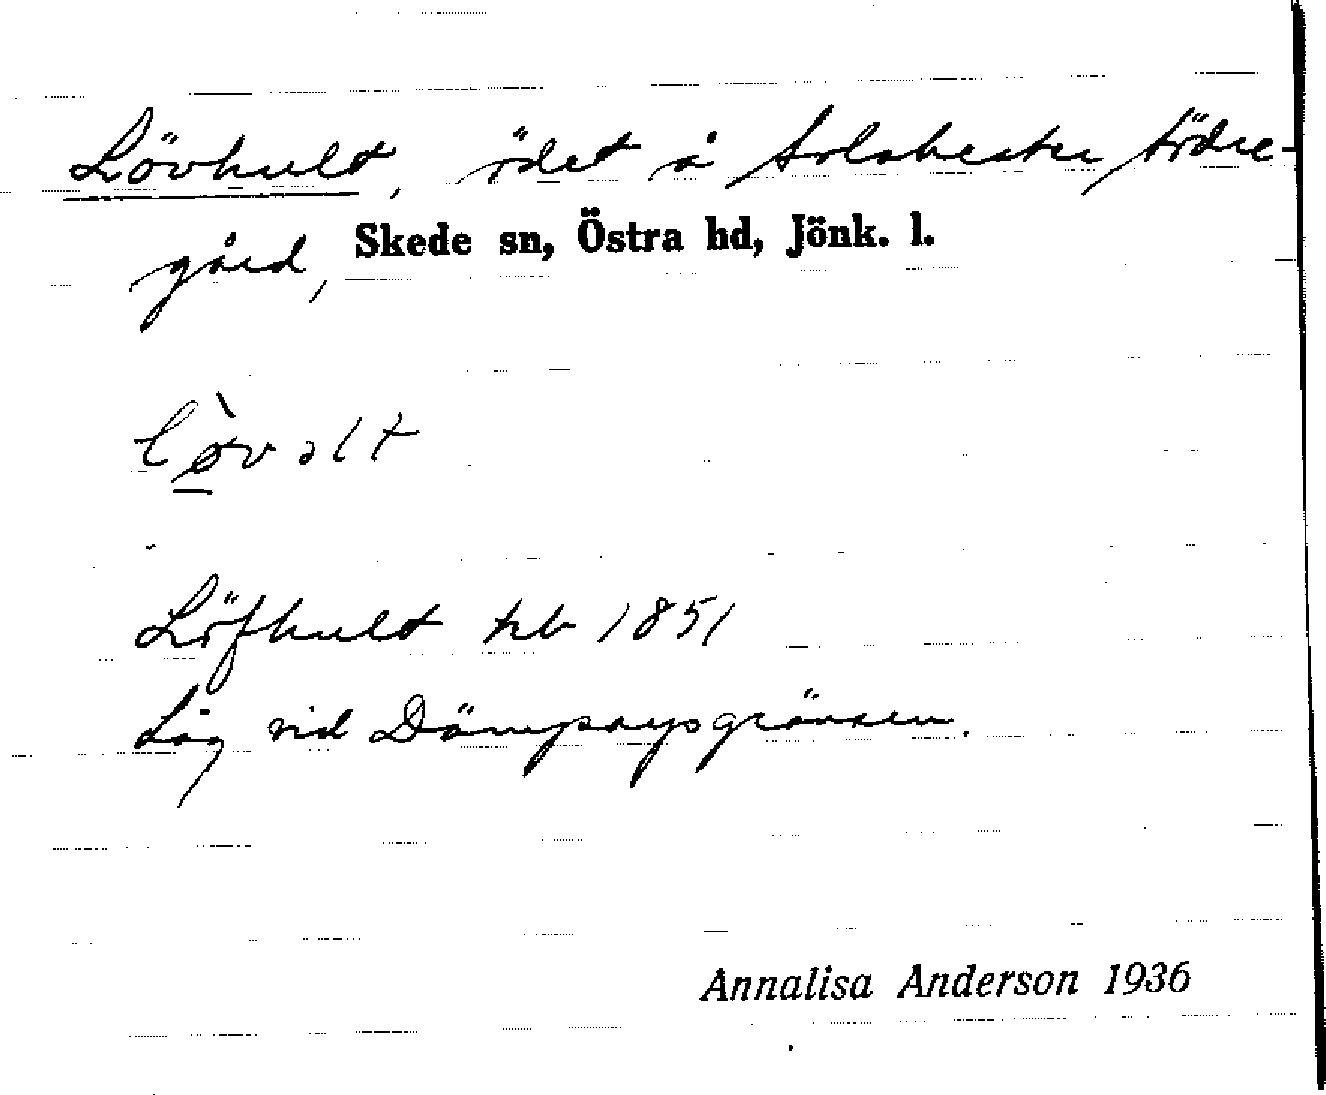 Lövhult, ödet å Solabester, Södre-
gård, Skede sn, Östra hd, Jönk. l.
lø̀vəlt
Löfhult hb 1851
Låg vid Dämpsnäsgränsen.
Annalisa Anderson 1936